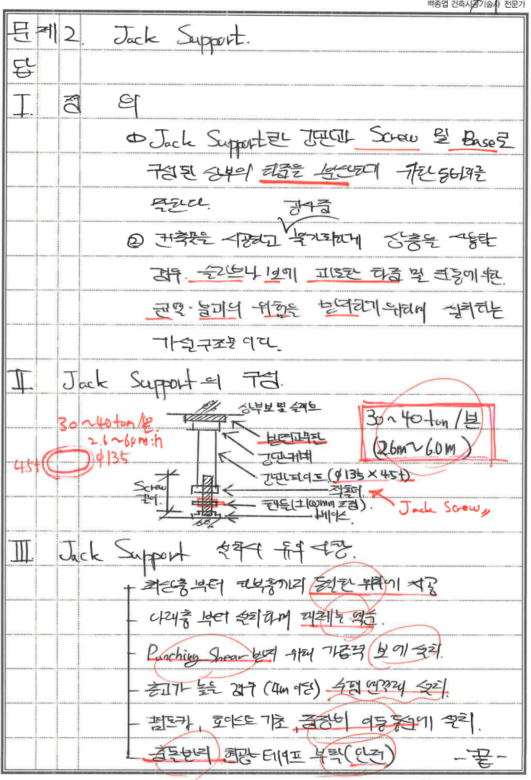 백종엽 건축시공기술사 전문가
문제 2. Jack Support.
답
I. 정 의
① Jack Support란 강관과 Screw 및 Base로
구성된 상부의 하중을 분산하기 위한 동바리를
말한다.
강재중
② 건축물을 시공하고 불가피하게 상층을 사용할
경우. 슬라브나 보에 과도한 하중 및 진동에 의한
균열·붕괴의 위험을 방지하기 위하여 설치하는
가설구조물이다.
II. Jack Support의 구성.
상부보 및 슬라브
30~40ton/본.
2.6~6.0m
4.5t φ135
30~40ton/본
(2.6m~6.0m)
(φ135×4.5t)
Screw
Jack Screw
베이스
III. Jack Support 설치시 유의사항.
- 최하층부터 상부층까지 동일한 위치에 시공
- 아래층부터 설치하며 해체는 역순.
- Punching Shear 방지 위해 가급적 보에 설치.
- 층고가 높은 경우 (4m 이상) 수평연결재 설치.
- 펌프카, 호이스트 기초, 중장비 이동동선에 설치.
- 충돌방지 형광테이프 부착(안전) - 끝 -